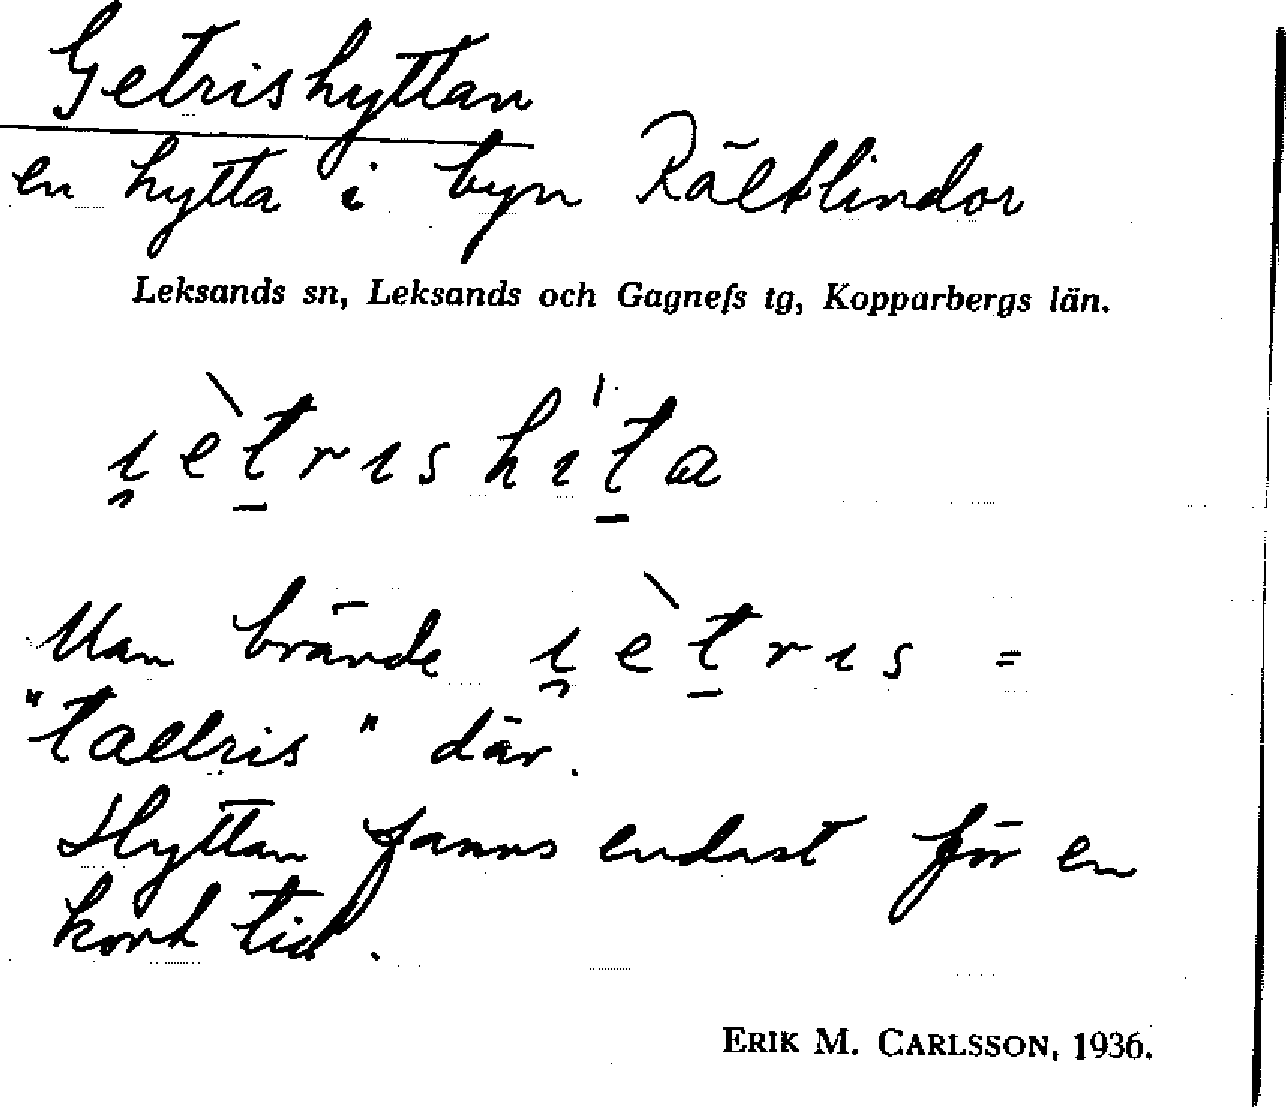 Getrishyttan
en hytta i byn Rältlindor
Leksands sn, Leksands och Gagnefs tg, Kopparbergs län.
ı̯ètrıshı́ta
Man brände ı̯ètrıs =
"tallris" där.
Hyttan fanns endast för en
kort tid.
ERIK M. CARLSSON, 1936.